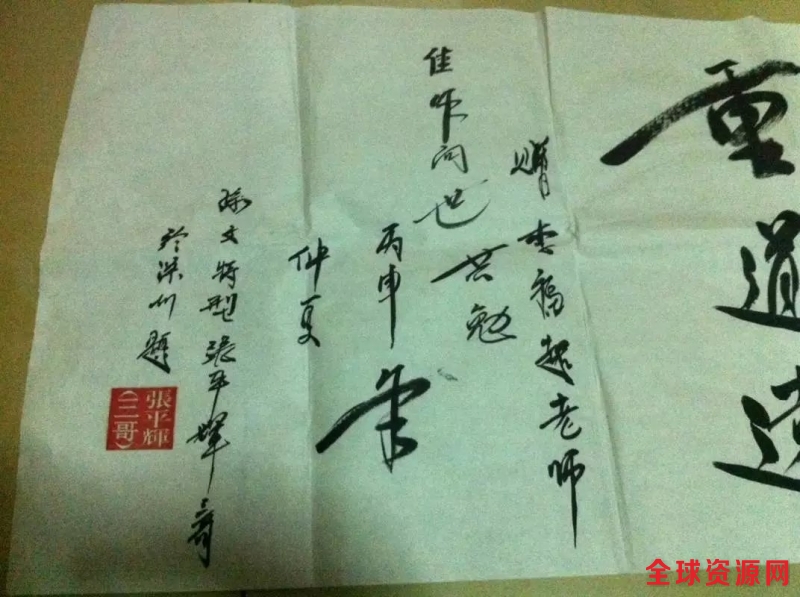 重道遠
赠李福超老师
佳作问世共勉
丙申年
仲夏
孙文特型張平輝三哥
於深圳題
張平輝
(三哥)
全球资源网